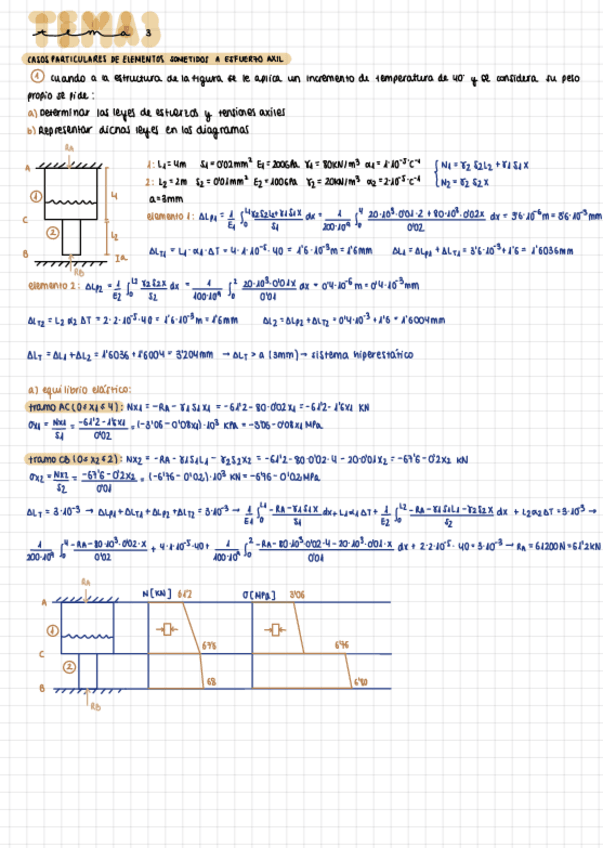 TEMA 3
tema 3
CASOS PARTICULARES DE ELEMENTOS SOMETIDOS A ESFUERZO AXIL
① Cuando a la estructura de la figura se le aplica un incremento de temperatura de 40º y se considera su peso
propio se pide:
a) Determinar las leyes de esfuerzos y tensiones axiles
b) Representar dichas leyes en los diagramas
RA
A
①
L1
C
②
L2
B
Ia
RB
1: L1=4m S1=0'02mm² E1=200GPa γ1=80KN/m³ α1=1·10⁻⁵ºC⁻¹
2: L2=2m S2=0'01mm² E2=100GPa γ2=20KN/m³ α2=2·10⁻⁵ºC⁻¹
{ N1 = γ2 S2L2 + γ1 S1 X
N2 = γ2 S2 X
a=3mm
elemento 1: ΔLP1 = 1/E1 ∫₀^L1 (γ2S2L2+γ1S1X)/S1 dx = 1/(200·10⁹) ∫₀⁴ (20·10³·0'01·2 + 80·10³·0'02X)/0'02 dx = 3'6·10⁻⁶m = 3'6·10⁻³mm
ΔLT1 = L1·α1·ΔT = 4·1·10⁻⁵·40 = 1'6·10⁻³m = 1'6mm ΔL1 = ΔLP1 + ΔLT1 = 3'6·10⁻³+1'6 = 1'6036mm
elemento 2: ΔLP2 = 1/E2 ∫₀^L2 γ2S2X/S2 dx = 1/(100·10⁹) ∫₀² 20·10³·0'01X/0'01 dx = 0'4·10⁻⁶m = 0'4·10⁻³mm
ΔLT2 = L2 α2 ΔT = 2·2·10⁻⁵·40 = 1'6·10⁻³m = 1'6mm ΔL2 = ΔLP2 + ΔLT2 = 0'4·10⁻³+1'6 = 1'6004mm
ΔLT = ΔL1 + ΔL2 = 1'6036 + 1'6004 = 3'204mm → ΔLT > a (3mm) → sistema hiperestático
a) equilibrio elástico:
tramo AC (0≤X1≤4): NX1 = -RA - γ1S1X1 = -61'2 - 80·0'02X1 = -61'2 - 1'6X1 KN
σX1 = NX1/S1 = (-61'2 - 1'6X1)/0'02 = (-3'06 - 0'08X1)·10³ KPa = -3'06 - 0'08X1 MPa
tramo CB (0≤X2≤2): NX2 = -RA - γ1S1L1 - γ2S2X2 = -61'2 - 80·0'02·4 - 20·0'01X2 = -67'6 - 0'2X2 KN
σX2 = NX2/S2 = (-67'6 - 0'2X2)/0'01 = (-6'76 - 0'02)·10³ KN = -6'76 - 0'02 MPa
ΔLT = 3·10⁻³ → ΔLP1 + ΔLT1 + ΔLP2 + ΔLT2 = 3·10⁻³ → 1/E1 ∫₀^L1 (-RA - γ1S1X)/S1 dx + L1α1ΔT + 1/E2 ∫₀^L2 (-RA - γ1S1L1 - γ2S2X)/S2 dx + L2α2ΔT = 3·10⁻³ →
1/(200·10⁹) ∫₀⁴ (-RA - 80·10³·0'02·X)/0'02 + 4·1·10⁻⁵·40 + 1/(100·10⁹) ∫₀² (-RA - 80·10³·0'02·4 - 20·10³·0'01·X)/0'01 dx + 2·2·10⁻⁵·40 = 3·10⁻³ → RA = 61200N = 61'2KN
RA
N[KN] 61'2
σ[MPa] 3'06
A
①
C
67'8
6'76
②
B
68
6'80
RB